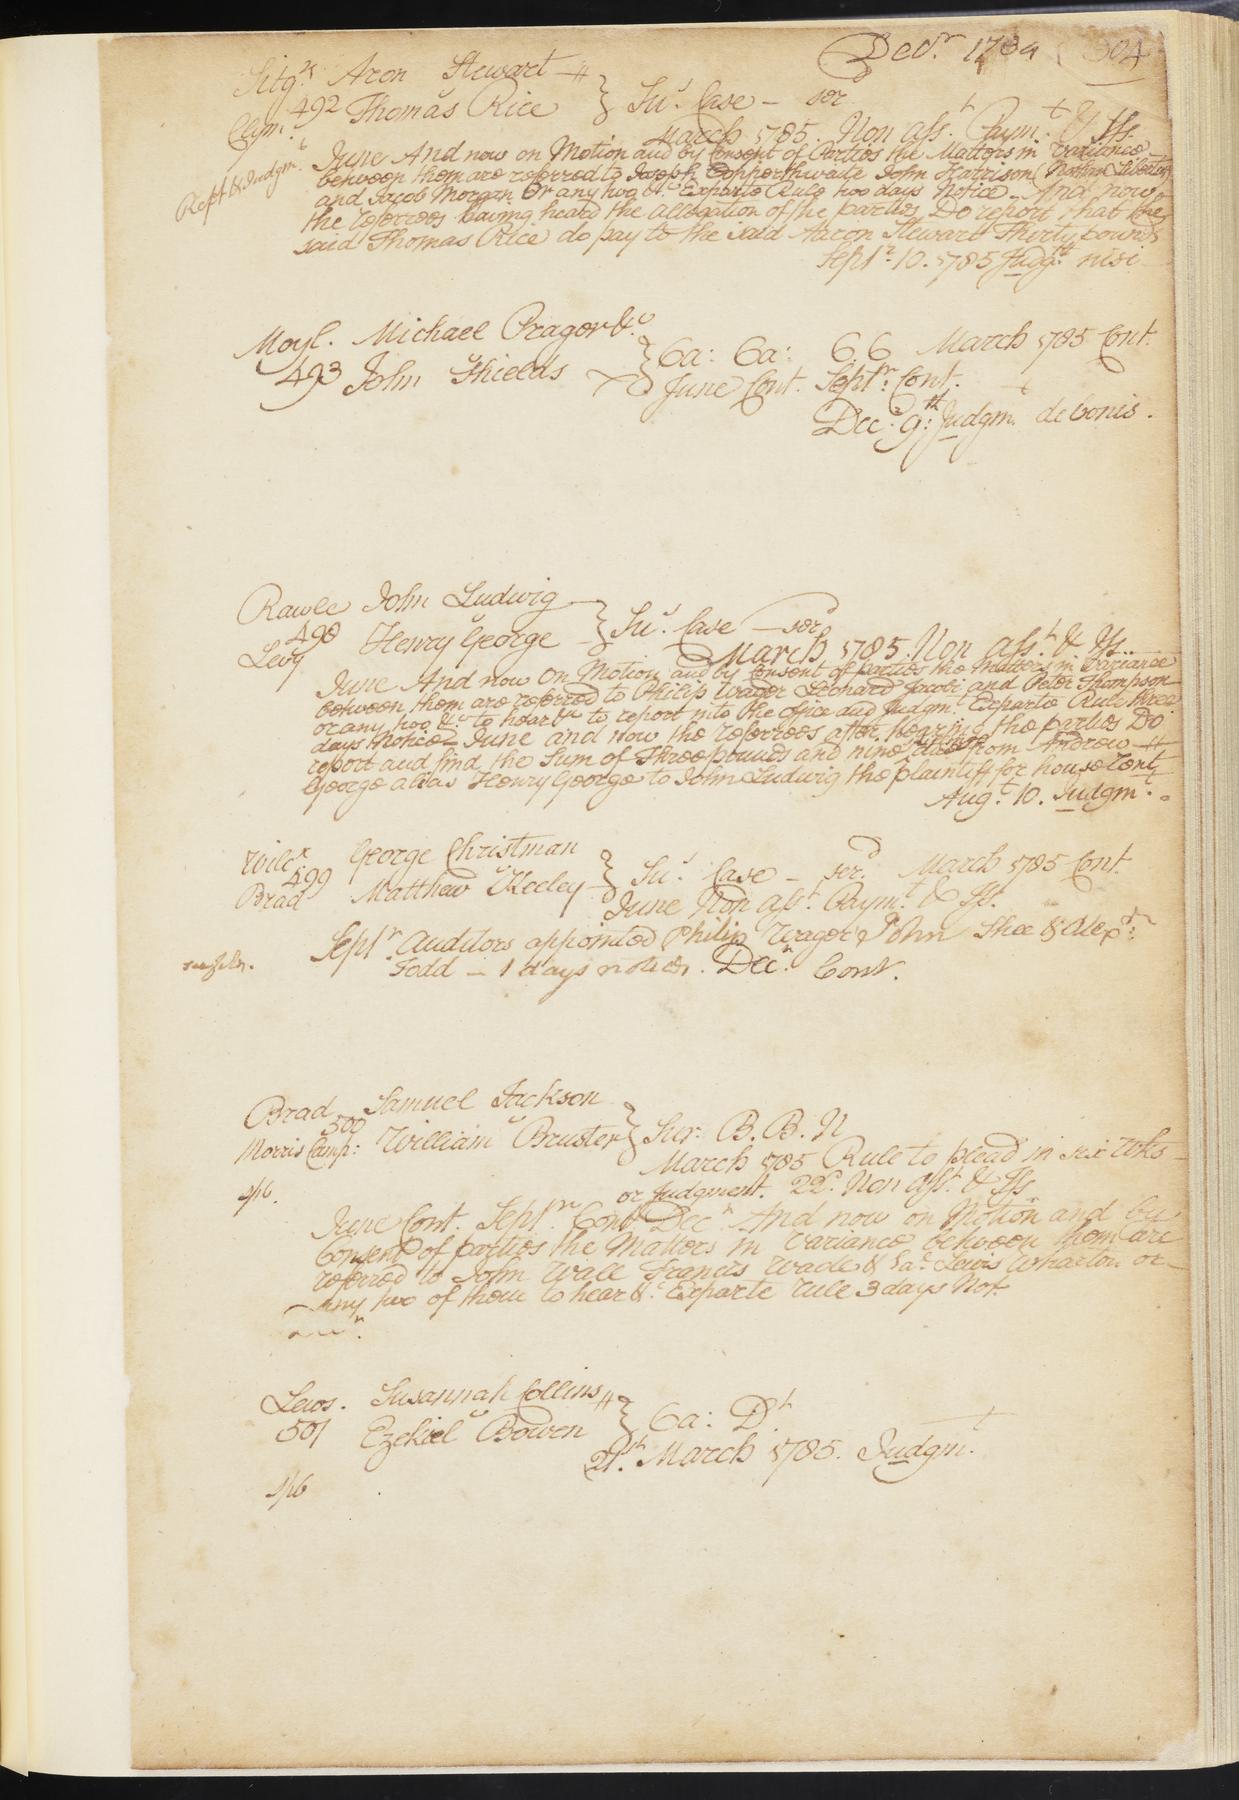 Decr. 1784 504
Sitgs. Aron Stewart
492 Thomas Rice } Sur. Case – serd
Clym.
March 1785. Non asst. Paymt. & Iss.
Rept & Judgmt.
June And now on Motion and by Consent of Parties the Matters in Variance
between them are referred to Joseph Copperthwaite John Harrison (Northern Liberties)
and Jacob Morgan Or any two &c. Exparte Rule two days Notice – And now
the referrees having heard the allegation of the parties Do report that the
said Thomas Rice do pay to the said Aaron Stewart Thirty pounds
Septr. 10. 1785 Judgt. nisi
Moyl. Michael Prager &c
493 John Shields } Ca: Ca: C. C March 1785 Cont.
June Cont. Septr. Cont.
Decr. 9th: Judgmt. de bonis.
Rawle John Ludwig
498 Henry George } Sur. Case – serd
Levy
March 1785. Non asst. & Iss.
June And now On Motion and by Consent of parties the Matters in Variance
between them are referred to Philip Wager Leonard Jacobi and Peter Thompson
or any two &c to hear &c to report into the Office and Judgmt. Exparte Rule three
days Notice – June and now the referrees after hearing the parties Do
report and find the Sum of Three pounds and nine from Andrew
George alias Henry George to John Ludwig the plaintiff for house rent
Augt. 10. Judgmt.
Wilcx George Christman
499 Matthew Keeley } Sur. Case – serd. March 1785 Cont.
Brad
June Non asst. Paymt. & Iss.
Septr. Auditors appointed Philip Wager John Shee & Alexdr:
Todd – 1 days notice. Decr. Cont.
Brad Samuel Jackson
500 William Bruster } Sur: B. B. N
Morris Camp:
March 1785 Rule to plead in six Wks
4/6.
or Judgment. 22d. Non asst. & Iss
June Cont. Septr. Cont Decr. And now on Motion and by
Consent of parties the Matters in Variance between them are
referred to John Wall Francis Wade & Lewis Wharton or
any two of them to hear &c. Exparte rule 3 days Not.
Lewis. Susannah Collins
501 Ezekiel Bowen } Ca: Dt.
21st. March 1785. Judgmt.
4/6